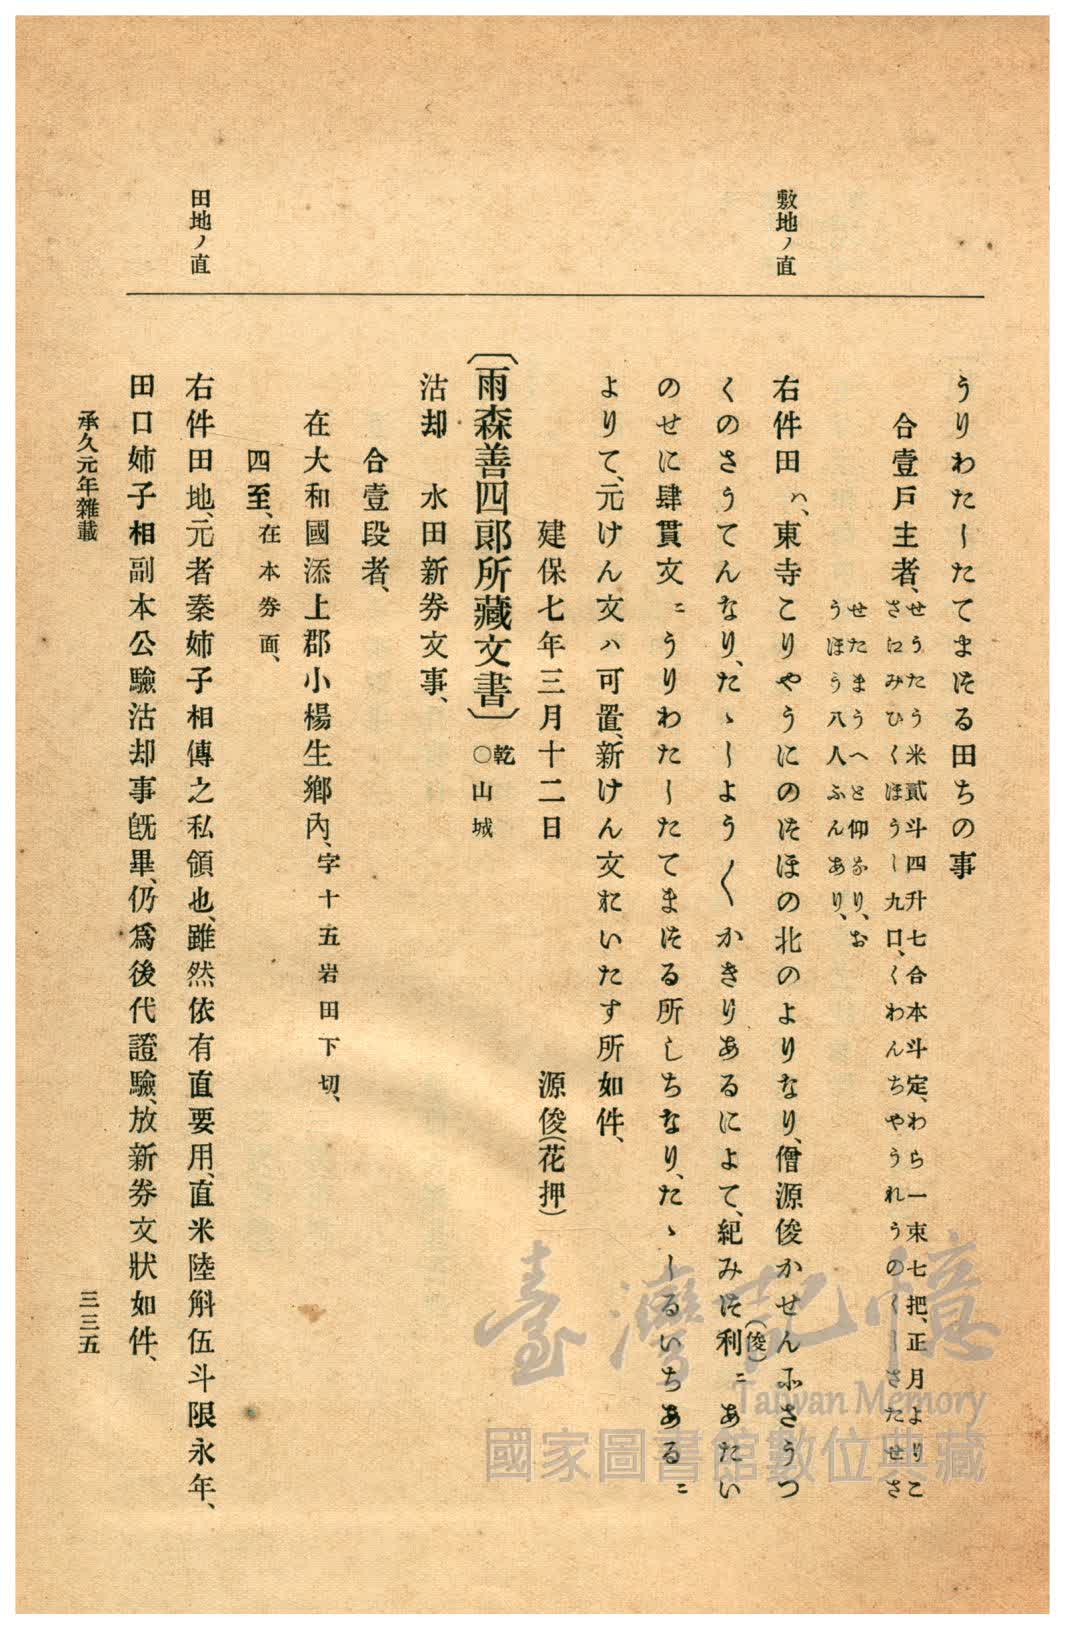 敷地ノ直
田地ノ直
うりわたしたてまつる田ちの事
合壹戸主者、せうたう米貳斗四升七合本斗定、わら一束七把、正月よりこ
さにみひくほうし九口、くわんちやうれうのくしさたせさ
せたまうへと仰なり、お
うほう八人ふんあり、
右件田ハ、東寺こりやうにのつほの北のよりなり、僧源俊かせんふさうつ
くのさうてんなり、たゝしよう〳〵かきりあるによて、紀みつ利(俊)ニあたい
のせに肆貫文ニうりわたしたてまつる所しちなり、たゝしるいちあるニ
よりて、元けん文ハ可置、新けん文おいたす所如件、
建保七年三月十二日　　源俊(花押)
〔雨森善四郎所藏文書〕乾○山城
沽却　水田新券文事、
合壹段者、
在大和國添上郡小楊生鄉內、字十五岩田下切、
四至、在本券面、
右件田地、元者秦姉子相傳之私領也、雖然依有直要用、直米陸斛伍斗限永年、
田口姉子相副本公驗沽却事旣畢、仍爲後代證驗、放新券文狀如件、
承久元年雜載
三三五
臺灣記憶
Taiwan Memory
國家圖書館數位典藏